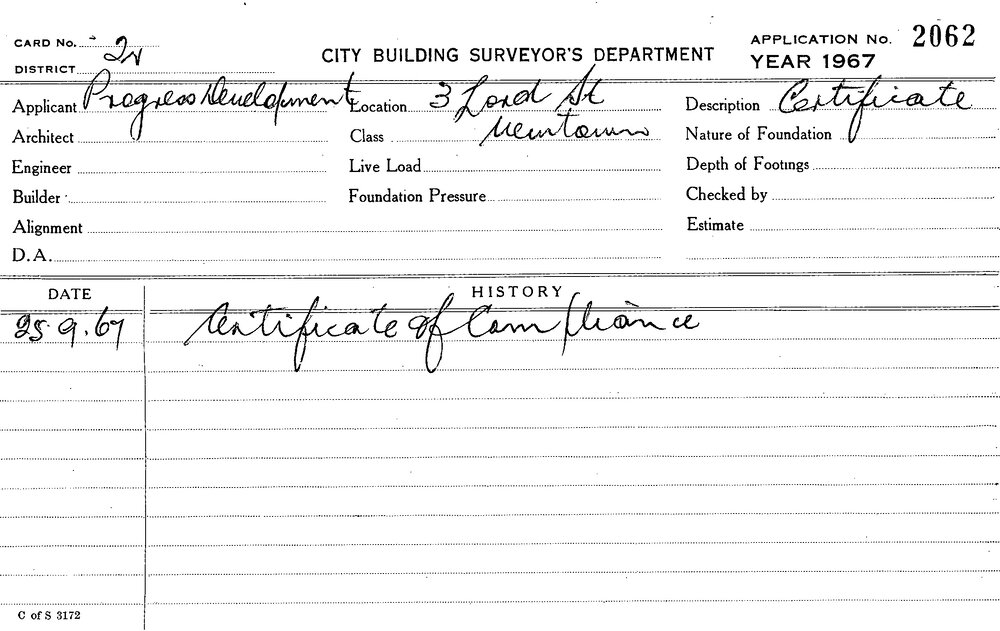 CARD No.
DISTRICT
CITY BUILDING SURVEYOR'S DEPARTMENT
APPLICATION No. 2062
YEAR 1967
Applicant Progress Development
Location 3 Lord St
Newtown
Description Certificate
Architect
Class
Nature of Foundation
Engineer
Live Load
Depth of Footings
Builder
Foundation Pressure
Checked by
Alignment
Estimate
D.A.
DATE HISTORY
25 9.67 Certificate of Compliance
C of S 3172